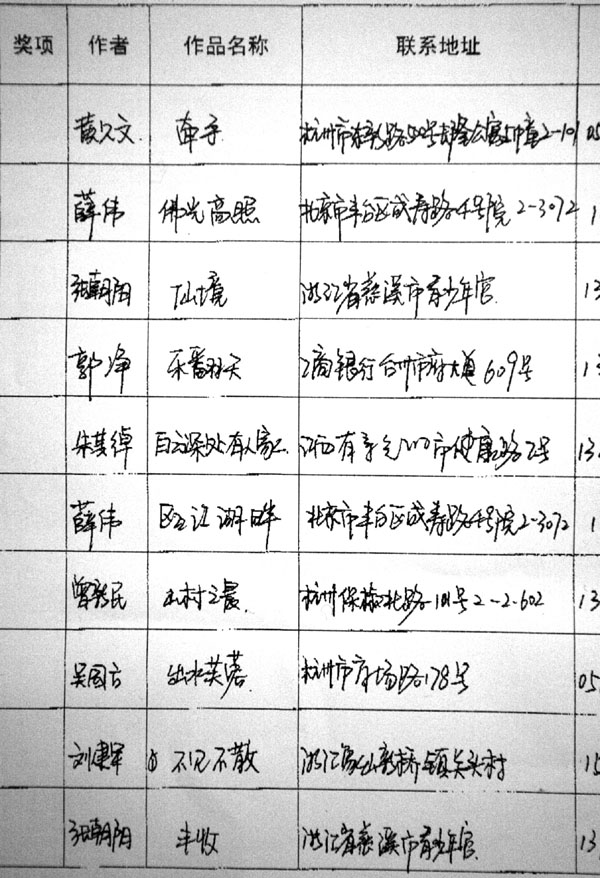 奖项 作者 作品名称 联系地址
黄久文 牵手 杭州市 路50号 2-101 05
薛伟 佛光高照 北京市丰台区成寿路4号院2-3072 1
张朝阳 仙境 浙江省慈溪市青少年宫 13
郭净 乐翻天 工商银行台州市府大道609号 13
朱其绰 白云深处有人家 江西 市健康路2号 13
薛伟 江湖畔 北京市丰台区成寿路4号院2-3072 1
曾新民 山村之晨 杭州保俶北路101号2-2-602 13
吴国方 出水芙蓉 杭州市 场路178号 05
刘建军 不见不散 浙江 桥镇关头村 15
张朝阳 丰收 浙江省慈溪市青少年宫 13